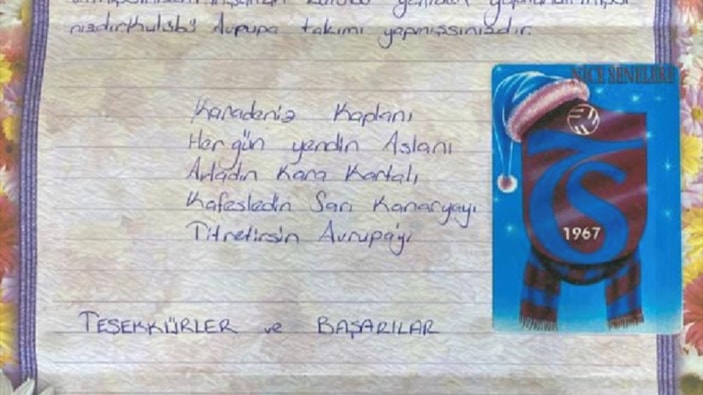 nizdir Kulübü Avrupa takımı yapmışsınızdır.
Karadeniz Kaplanı
Her gün yendin Aslanı
Avladın Kara Kartalı
Kafesledin Sarı Kanaryayı
Titretirsin Avrupa'yı
TEŞEKKÜRLER ve BAŞARILAR
NİCE SENELERE
TS
1967